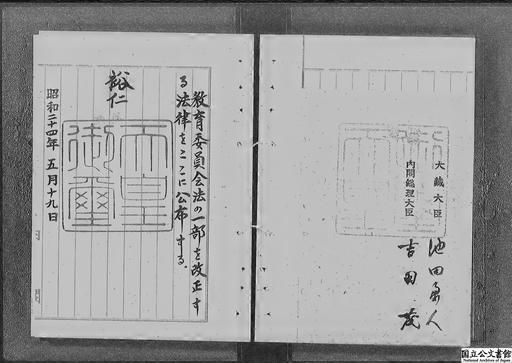 大蔵大臣 池田勇人
内閣総理大臣 吉田茂
教育委員会法の一部を改正す
る法律をここに公布する。
裕仁
天皇御璽
昭和二十四年五月十九日
国立公文書館
National Archives of Japan